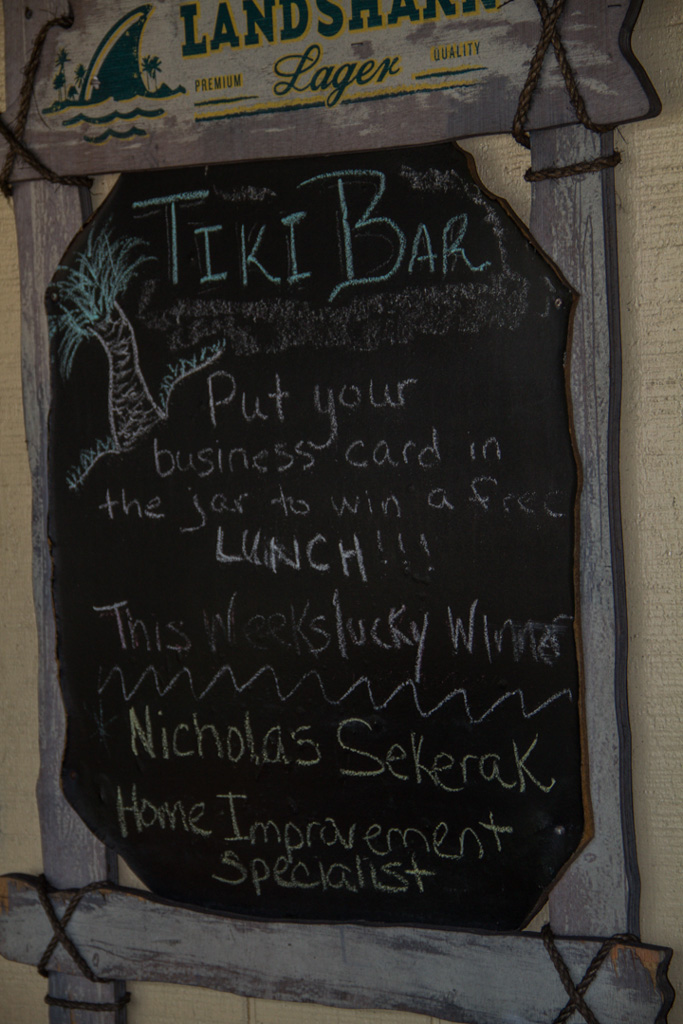 LANDSHARK
PREMIUM Lager QUALITY
TIKI BAR
Put your
business card in
the jar to win a free
LUNCH!!!
This Weeks lucky Winner
Nicholas Sekerak
Home Improvement
Specialist